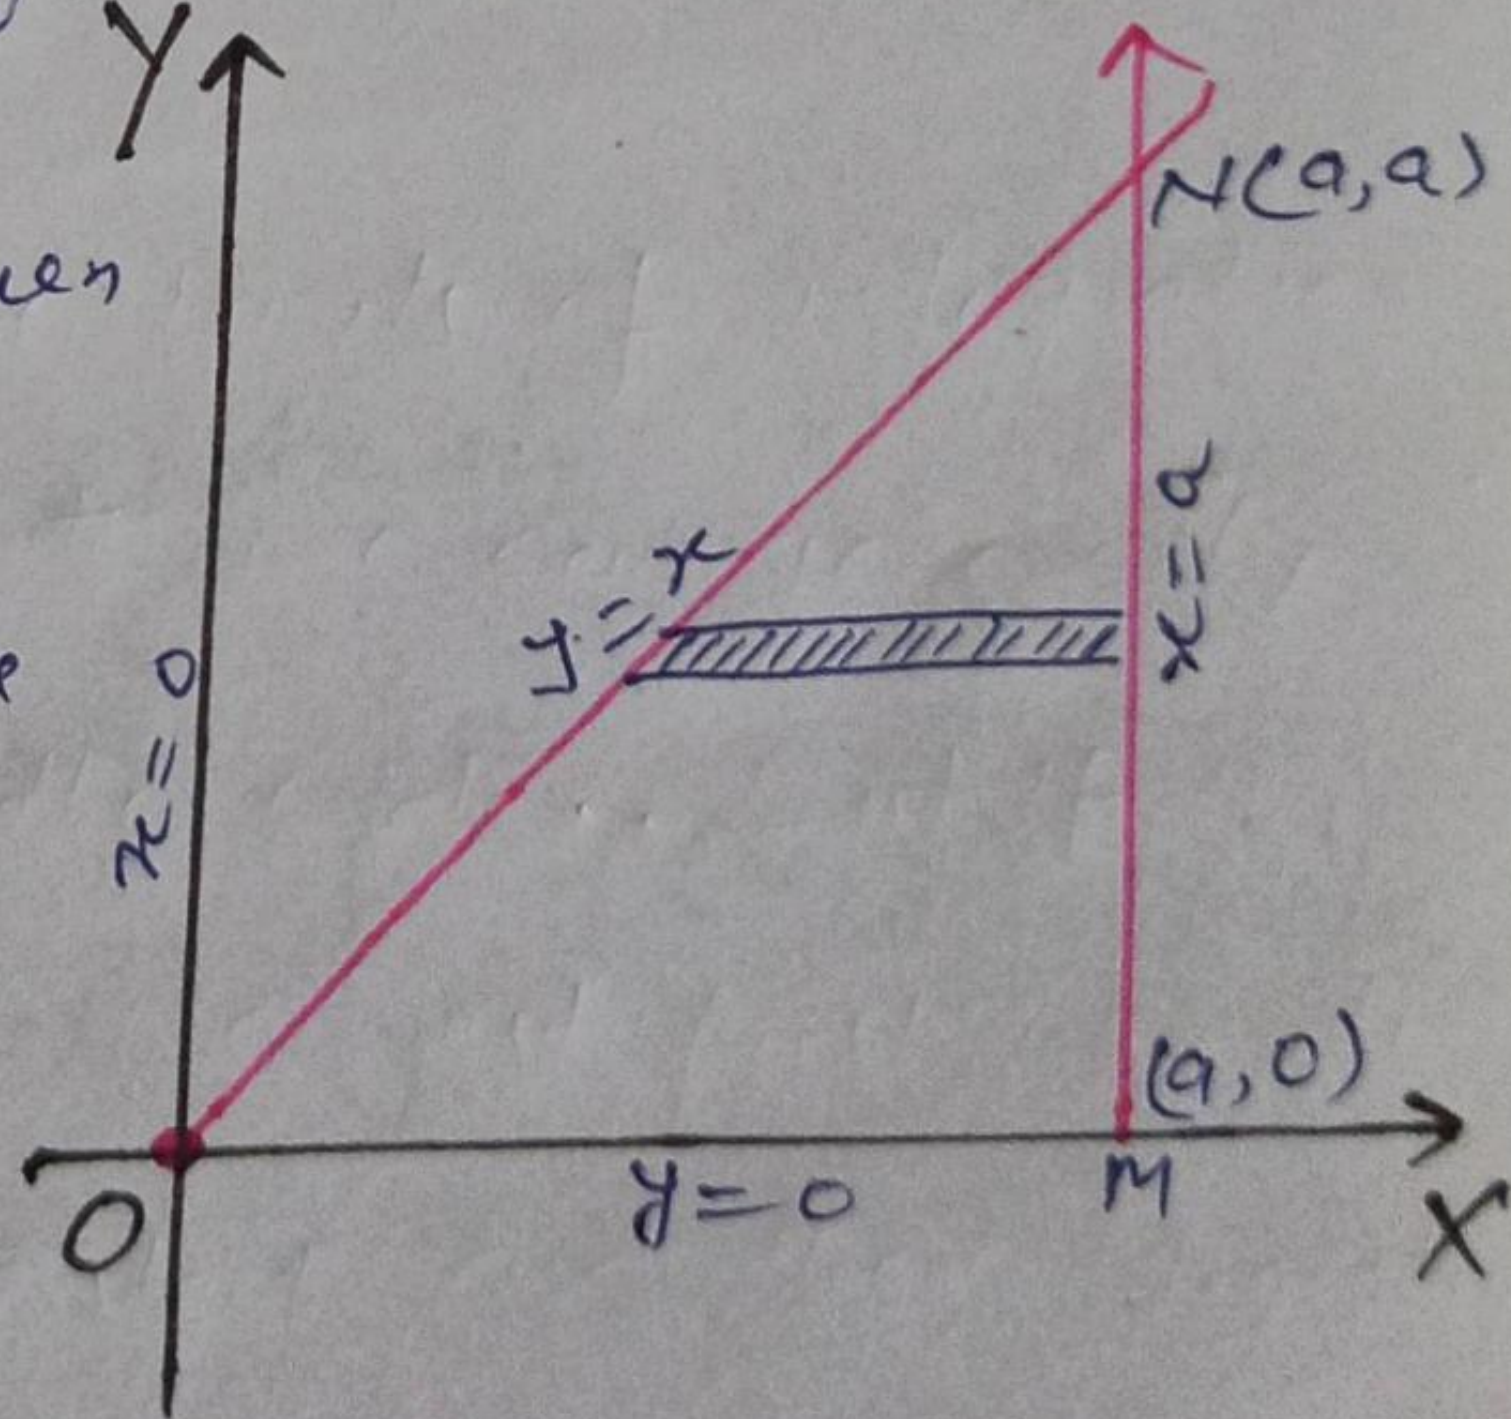 Y
N(a,a)
x = a
y = x
x = 0
(a,0)
O
y = 0
M
X